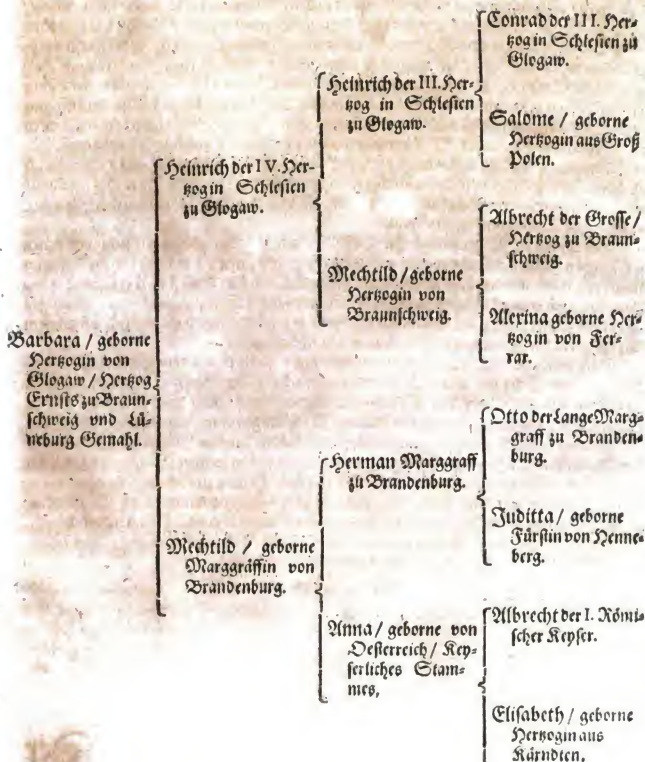 Barbara / geborne
Hertzogin von
Glogaw / Hertzog
Ernsts zu Braun=
schweig vnd Lü=
neburg Gemahl.
Heinrich der IV. Her=
tzog in Schlesien
zu Glogaw.
Mechtild / geborne
Marggräffin von
Brandenburg.
Heinrich der III. Her=
tzog in Schlesien
zu Glogaw.
Mechtild / geborne
Hertzogin von
Braunschweig.
Herman Marggraff
zu Brandenburg.
Anna / geborne von
Oesterreich / Key=
serliches Stam=
mes.
Conrad der III. Her=
tzog in Schlesien zu
Glogaw.
Salome / geborne
Hertzogin aus Groß
Polen.
Albrecht der Grosse /
Hertzog zu Braun=
schweig.
Alexina geborne Her=
tzogin von Fer=
rar.
Otto der Lange Marg=
graff zu Branden=
burg.
Juditta / geborne
Fürstin von Henne=
berg.
Albrecht der I. Römi=
scher Keyser.
Elisabeth / geborne
Hertzogin aus
Kärndten.